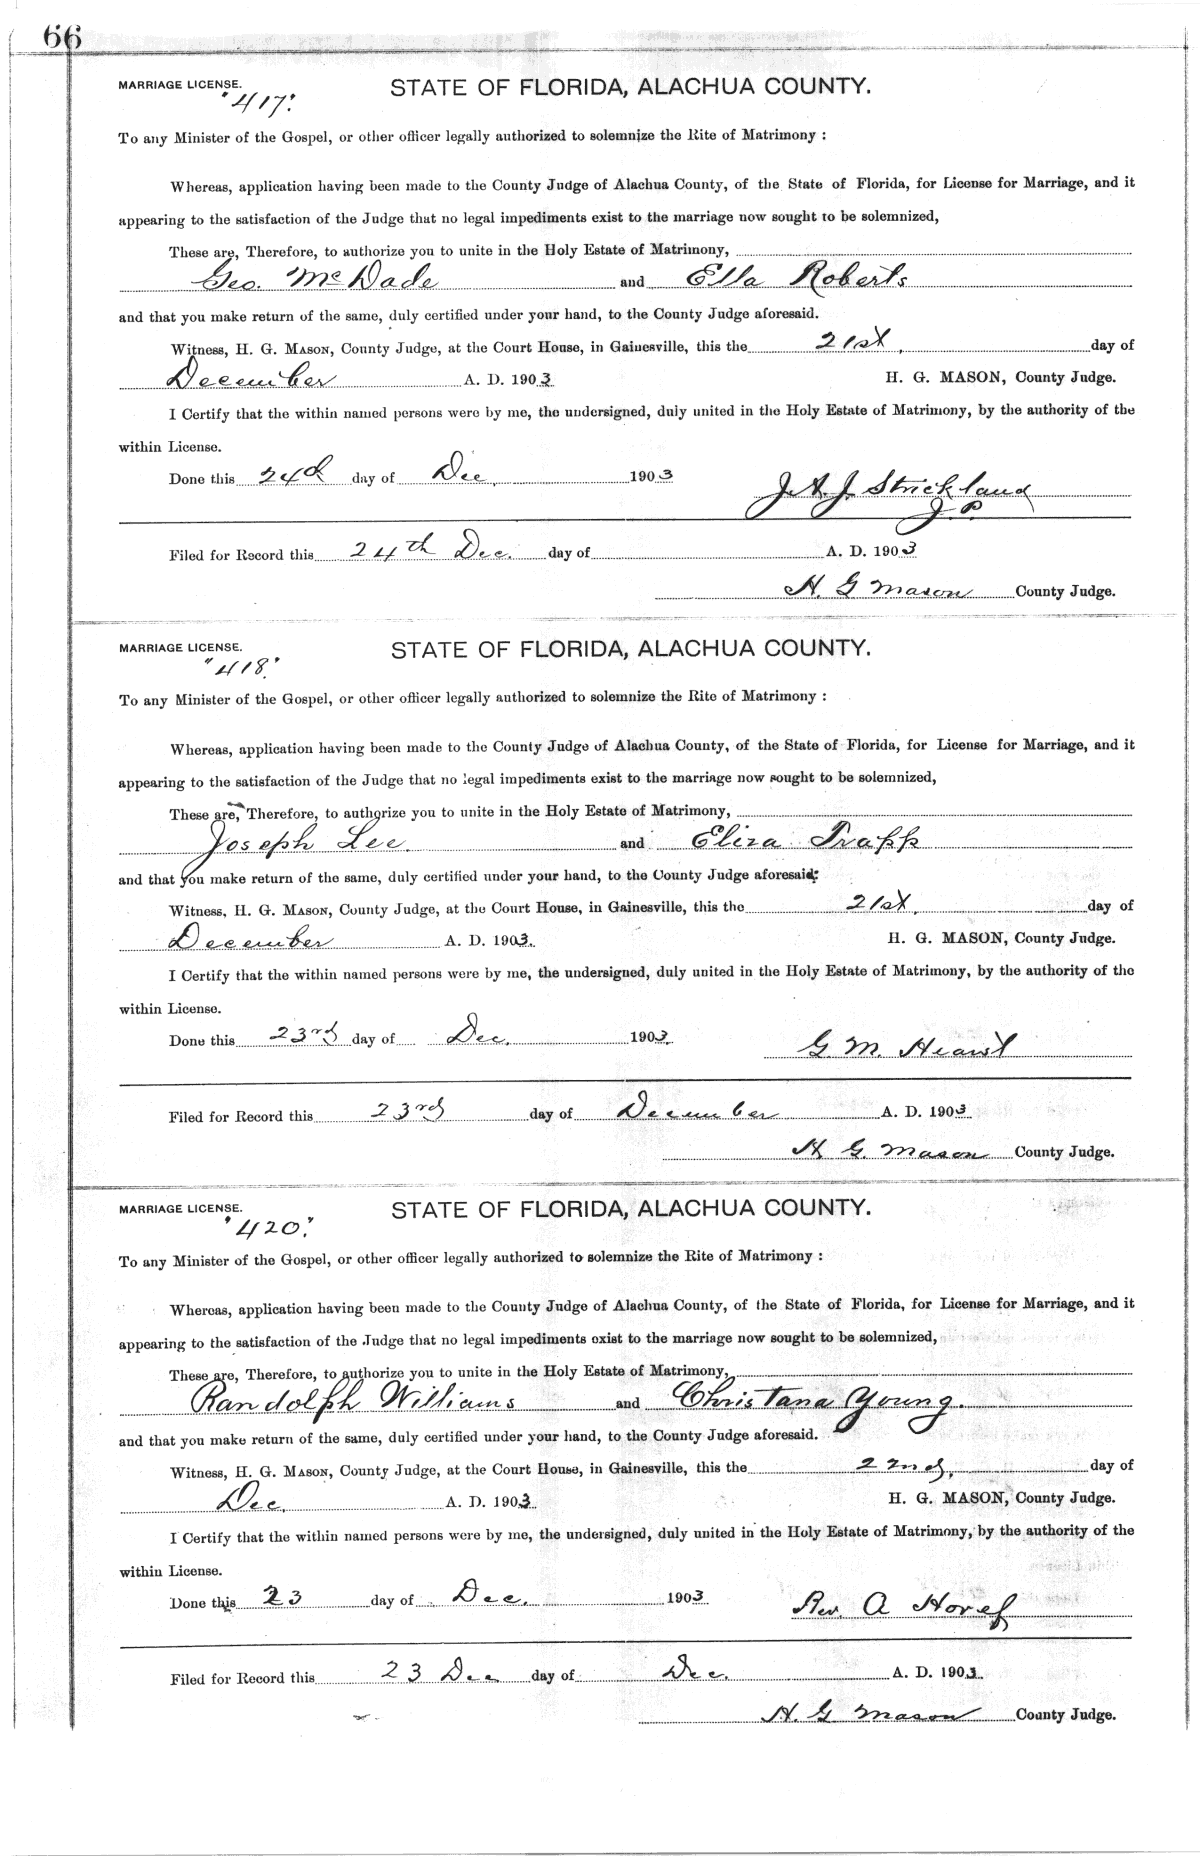 66
MARRIAGE LICENSE. STATE OF FLORIDA, ALACHUA COUNTY.
"417."
To any Minister of the Gospel, or other officer legally authorized to solemnize the Rite of Matrimony :
Whereas, application having been made to the County Judge of Alachua County, of the State of Florida, for License for Marriage, and it
appearing to the satisfaction of the Judge that no legal impediments exist to the marriage now sought to be solemnized,
These are, Therefore, to authorize you to unite in the Holy Estate of Matrimony,
Geo. McDade and Ella Roberts
and that you make return of the same, duly certified under your hand, to the County Judge aforesaid.
Witness, H. G. MASON, County Judge, at the Court House, in Gainesville, this the 21st, day of
December A. D. 1903 H. G. MASON, County Judge.
I Certify that the within named persons were by me, the undersigned, duly united in the Holy Estate of Matrimony, by the authority of the
within License.
Done this 24d day of Dec. 1903 J. A. J. Strickland
J. P.
Filed for Record this 24th Dec. day of A. D. 1903
H. G Mason County Judge.
MARRIAGE LICENSE. STATE OF FLORIDA, ALACHUA COUNTY.
"418."
To any Minister of the Gospel, or other officer legally authorized to solemnize the Rite of Matrimony :
Whereas, application having been made to the County Judge of Alachua County, of the State of Florida, for License for Marriage, and it
appearing to the satisfaction of the Judge that no legal impediments exist to the marriage now sought to be solemnized,
These are, Therefore, to authorize you to unite in the Holy Estate of Matrimony,
Joseph Lee. and Eliza Trapp
and that you make return of the same, duly certified under your hand, to the County Judge aforesaid:
Witness, H. G. MASON, County Judge, at the Court House, in Gainesville, this the 21st, day of
December A. D. 1903. H. G. MASON, County Judge.
I Certify that the within named persons were by me, the undersigned, duly united in the Holy Estate of Matrimony, by the authority of the
within License.
Done this 23rd day of Dec. 1903. G. M. Hearst
Filed for Record this 23rd day of December A. D. 1903
H G. Mason County Judge.
MARRIAGE LICENSE. STATE OF FLORIDA, ALACHUA COUNTY.
"420."
To any Minister of the Gospel, or other officer legally authorized to solemnize the Rite of Matrimony :
Whereas, application having been made to the County Judge of Alachua County, of the State of Florida, for License for Marriage, and it
appearing to the satisfaction of the Judge that no legal impediments exist to the marriage now sought to be solemnized,
These are, Therefore, to authorize you to unite in the Holy Estate of Matrimony,
Randolph Williams and Christana Young.
and that you make return of the same, duly certified under your hand, to the County Judge aforesaid.
Witness, H. G. MASON, County Judge, at the Court House, in Gainesville, this the 22nd, day of
Dec. A. D. 1903. H. G. MASON, County Judge.
I Certify that the within named persons were by me, the undersigned, duly united in the Holy Estate of Matrimony, by the authority of the
within License.
Done this 23 day of Dec. 1903 Rev. A
Filed for Record this 23 Dec day of Dec. A. D. 1903.
H. G Mason County Judge.